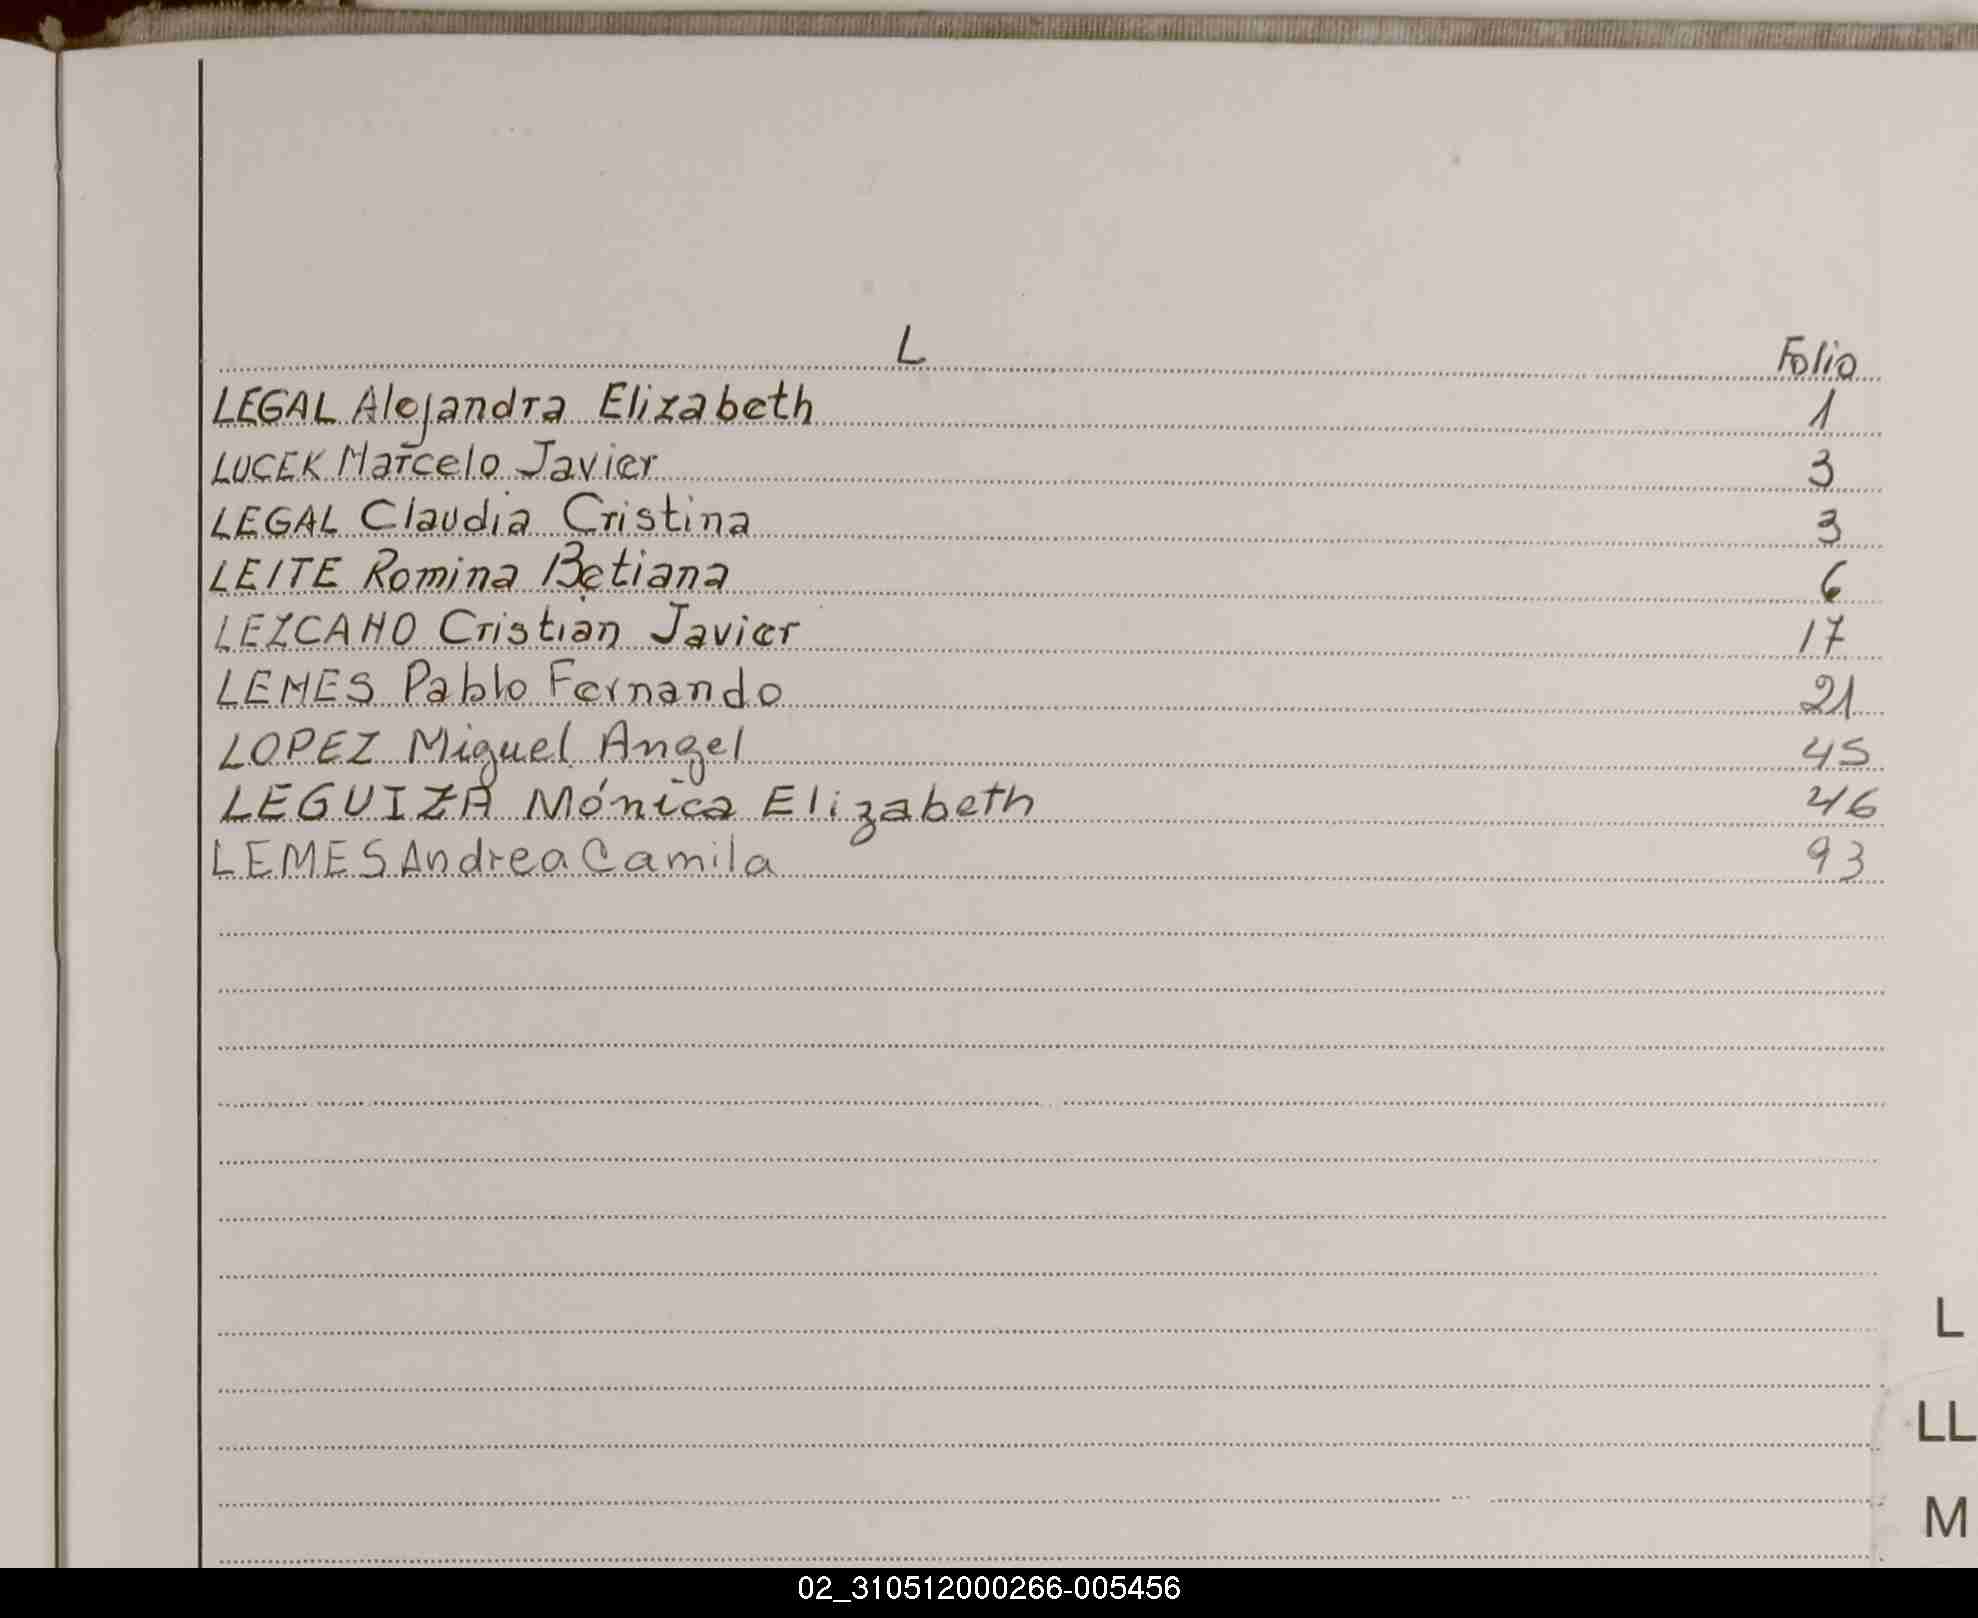 L Folio
LEGAL Alejandra Elizabeth 1
LUCEK Marcelo Javier 3
LEGAL Claudia Cristina 3
LEITE Romina Betiana 6
LEZCANO Cristian Javier 17
LEMES Pablo Fernando 21
LOPEZ Miguel Angel 45
LEGUIZA Mónica Elizabeth 46
LEMES Andrea Camila 93
L
LL
M
02_310512000266-005456